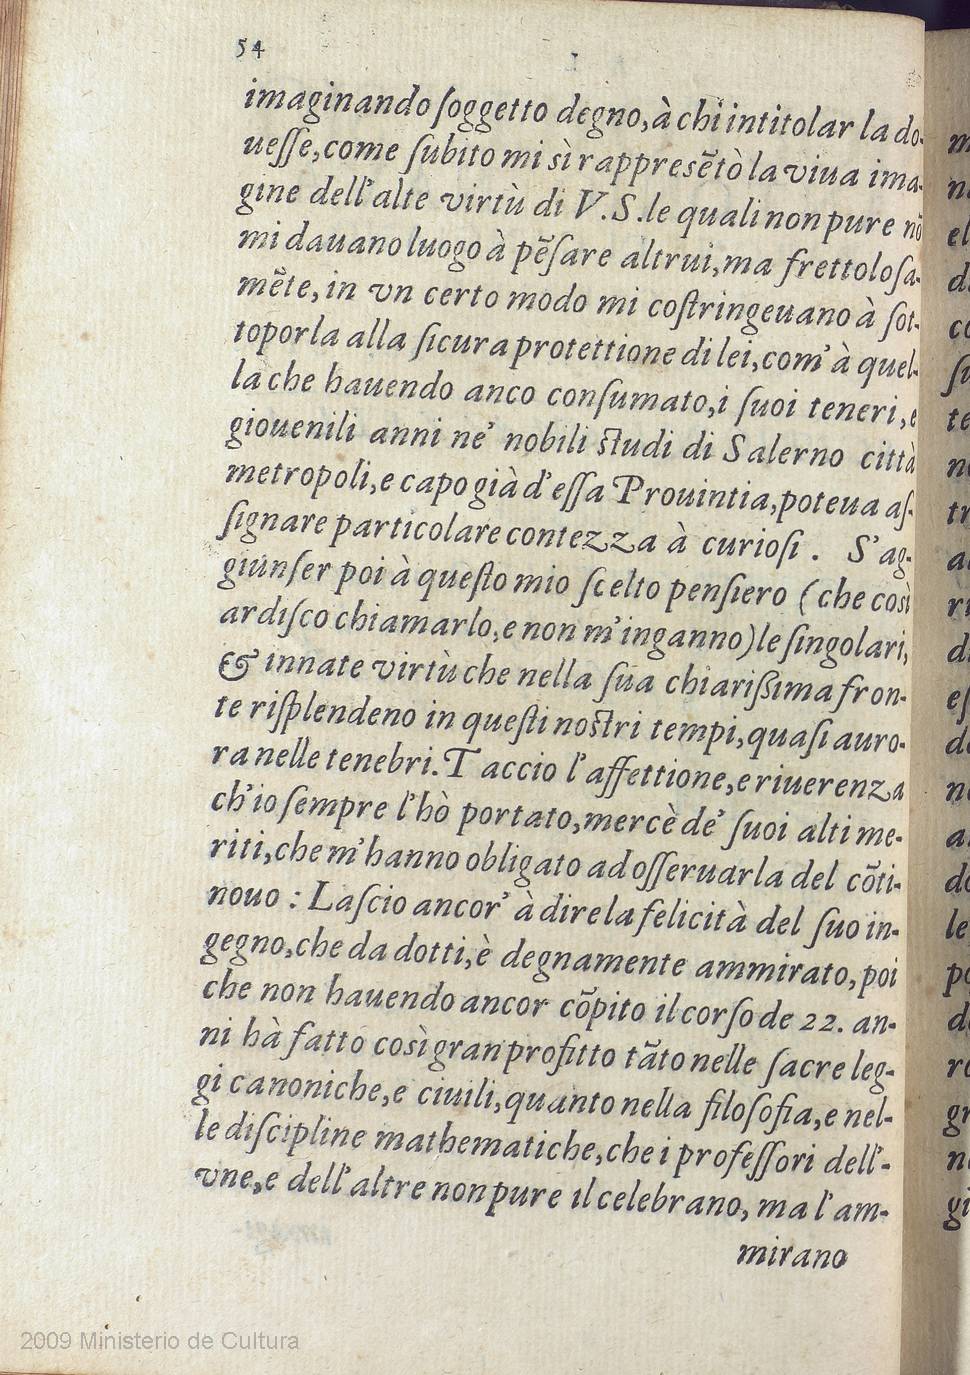 54
imaginando ſoggetto degno, à chi intitolar la do-
ueſſe, come ſubito mi sì rappresẽtò la viua ima-
gine dell'alte virtù di V.S. le quali non pure nõ
mi dauano luogo à pẽſare altrui, ma frettoloſa-
mẽte, in vn certo modo mi coſtringeuano à ſot-
toporla alla ſicura protettione di lei, com' à quel-
la che hauendo anco conſumato, i ſuoi teneri, e
giouenili anni ne' nobili ſtudi di Salerno città
metropoli, e capo già d'eſſa Prouintia, poteua aſ-
ſignare particolare contezza à curioſi . S'ag-
giunſer poi à queſto mio ſcelto penſiero (che così
ardiſco chiamarlo, e non m'inganno) le ſingolari,
& innate virtù che nella ſua chiariſsima fron-
te riſplendeno in queſti noſtri tempi, quaſi auro-
ra nelle tenebri. Taccio l'affettione, e riuerenza
ch'io ſempre l'hò portato, mercè de' ſuoi alti me-
riti, che m'hanno obligato ad oſſeruarla del cõti-
nouo : Laſcio ancor' à dire la felicità del ſuo in-
gegno, che da dotti, è degnamente ammirato, poi
che non hauendo ancor cõpito il corſo de 22. an-
ni hà fatto così gran profitto tãto nelle ſacre leg-
gi canoniche, e ciuili, quanto nella filoſofia, e nel-
le diſcipline mathematiche, che i profeſſori dell'-
vne, e dell'altre non pure il celebrano, ma l'am-
mirano
2009 Ministerio de Cultura